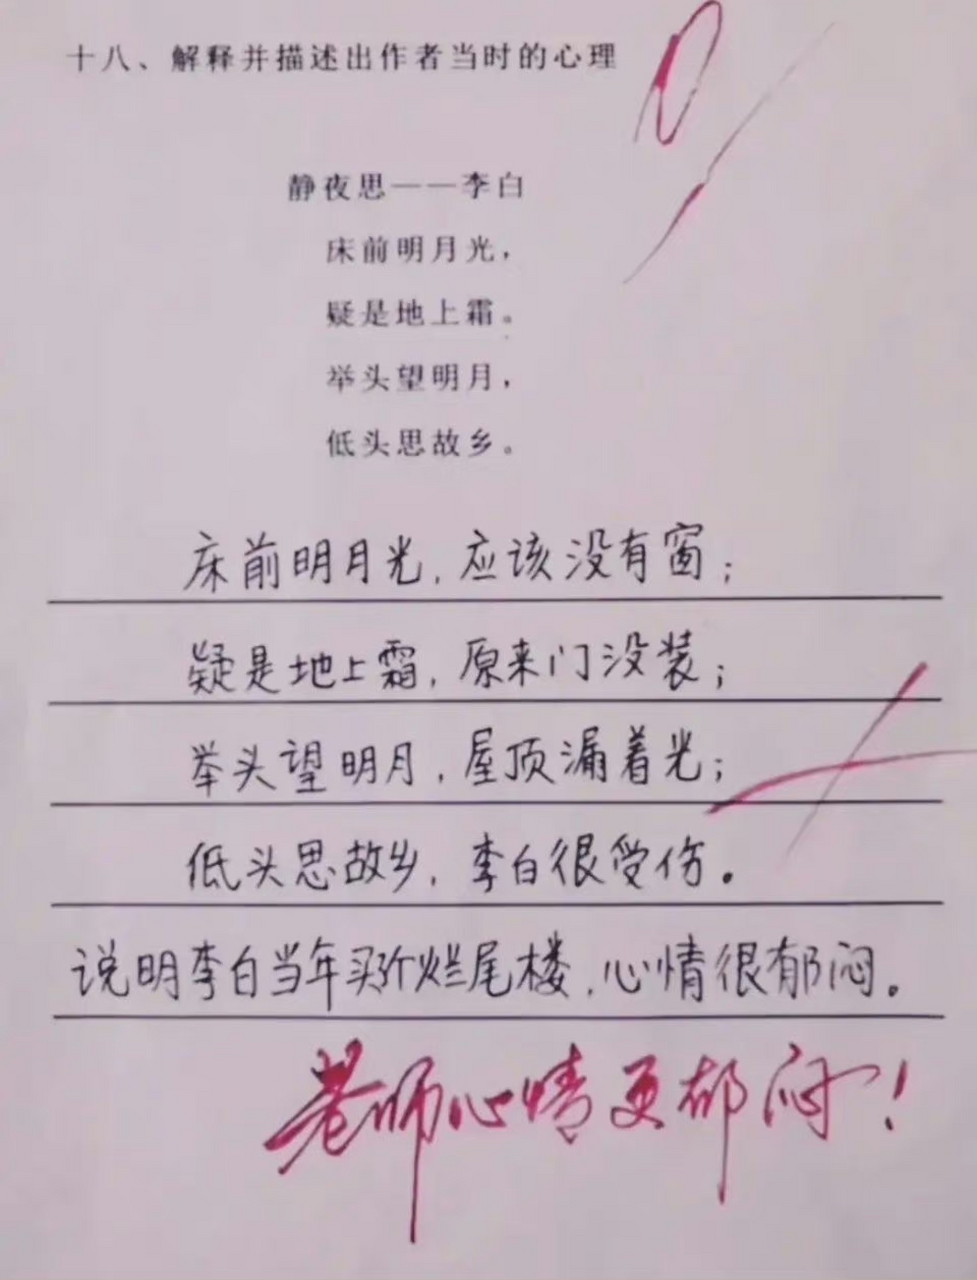 十八、解释并描述出作者当时的心理
静夜思——李白
床前明月光，
疑是地上霜。
举头望明月，
低头思故乡。
床前明月光，应该没有窗；
疑是地上霜，原来门没装；
举头望明月，屋顶漏着光；
低头思故乡，李白很受伤。
说明李白当年买个烂尾楼，心情很郁闷。
老师心情更郁闷！